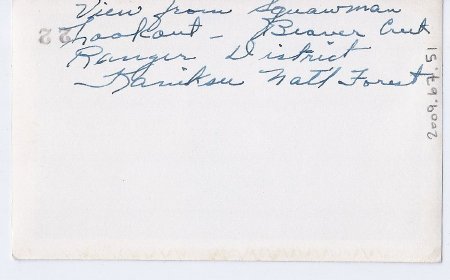 View from Squawman
Lookout - Beaver Creek
Ranger District
Kaniksu Nat'l Forest
22
2009.67.51